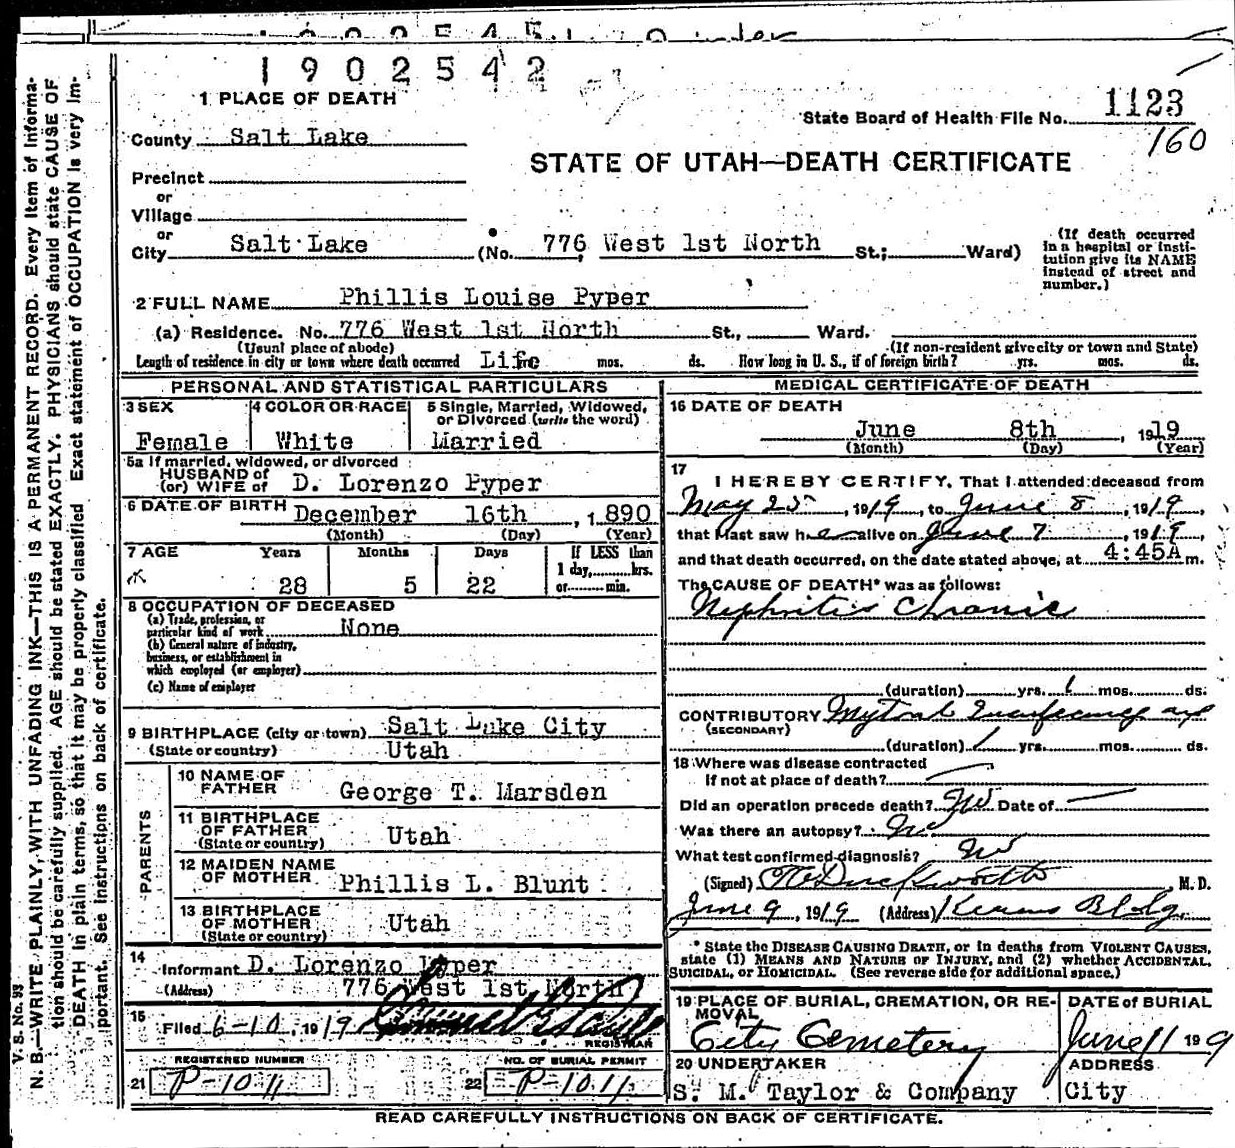 1902542
1 PLACE OF DEATH
State Board of Health File No. 1123
160
County Salt Lake
STATE OF UTAH—DEATH CERTIFICATE
Precinct
or
Village
or
City Salt Lake (No. 776 West 1st North St.; Ward)
(If death occurred in a hospital or institution give its NAME instead of street and number.)
2 FULL NAME Phillis Louise Pyper
(a) Residence. No. 776 West 1st North St., Ward.
(Usual place of abode) (If non-resident give city or town and State)
Length of residence in city or town where death occurred Life mos. ds. How long in U. S., if of foreign birth? yrs. mos. ds.
PERSONAL AND STATISTICAL PARTICULARS
3 SEX 4 COLOR OR RACE 5 Single, Married, Widowed, or Divorced (write the word)
Female White Married
5a If married, widowed, or divorced
HUSBAND of
(or) WIFE of D. Lorenzo Pyper
6 DATE OF BIRTH December 16th, 1890
(Month) (Day) (Year)
7 AGE Years Months Days If LESS than 1 day, hrs. or min.
28 5 22
8 OCCUPATION OF DECEASED
(a) Trade, profession, or particular kind of work None
(b) General nature of industry, business, or establishment in which employed (or employer)
(c) Name of employer
9 BIRTHPLACE (city or town) Salt Lake City
(State or country) Utah
PARENTS
10 NAME OF FATHER George T. Marsden
11 BIRTHPLACE OF FATHER (State or country) Utah
12 MAIDEN NAME OF MOTHER Phillis L. Blunt
13 BIRTHPLACE OF MOTHER (State or country) Utah
14 Informant D. Lorenzo Pyper
(Address) 776 West 1st North
15 Filed 6-10, 1919
REGISTRAR
REGISTERED NUMBER NO. OF BURIAL PERMIT
21 P-1011 22 P-1011
MEDICAL CERTIFICATE OF DEATH
16 DATE OF DEATH
June 8th, 1919
(Month) (Day) (Year)
17 I HEREBY CERTIFY, That I attended deceased from
May 25, 1919, to June 8, 1919
that I last saw her alive on June 7, 1919
and that death occurred, on the date stated above, at 4:45A m.
The CAUSE OF DEATH* was as follows:
Nephritis Chronic
(duration) yrs. 1 mos. ds.
CONTRIBUTORY Mytral
(SECONDARY)
(duration) 1 yrs. mos. ds.
18 Where was disease contracted
If not at place of death?
Did an operation precede death? No Date of
Was there an autopsy? No
What test confirmed diagnosis? No
(Signed) Duckworth, M. D.
June 9, 1919 (Address) Kearns Bldg
* State the DISEASE CAUSING DEATH, or in deaths from VIOLENT CAUSES,
state (1) MEANS AND NATURE OF INJURY, and (2) whether ACCIDENTAL,
SUICIDAL, or HOMICIDAL. (See reverse side for additional space.)
19 PLACE OF BURIAL, CREMATION, OR REMOVAL DATE of BURIAL
City Cemetery June 11 1919
20 UNDERTAKER ADDRESS
S. M. Taylor & Company City
READ CAREFULLY INSTRUCTIONS ON BACK OF CERTIFICATE.
V. S. No. 93
N. B.—WRITE PLAINLY, WITH UNFADING INK—THIS IS A PERMANENT RECORD. Every item of informa-
tion should be carefully supplied. AGE should be stated EXACTLY. PHYSICIANS should state CAUSE OF
DEATH in plain terms, so that it may be properly classified Exact statement of OCCUPATION is very im-
portant. See instructions on back of certificate.